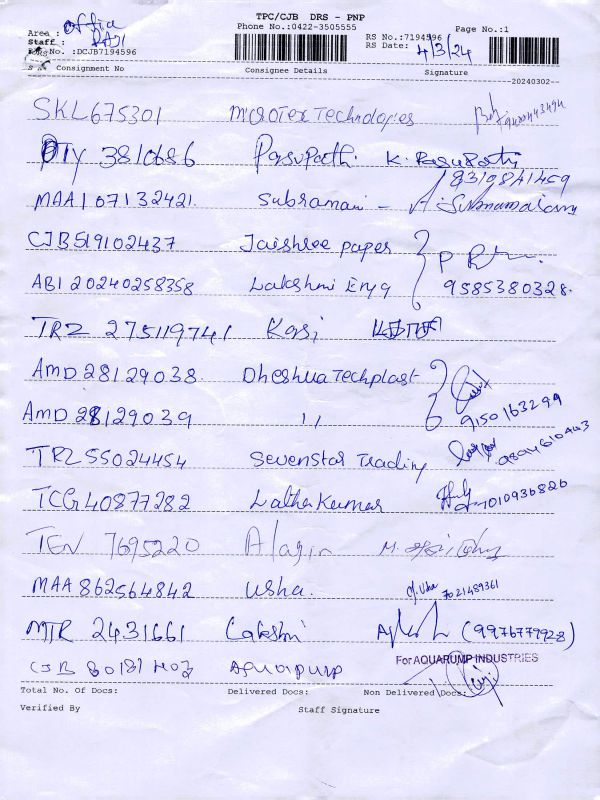 TPC/CJB DRS - PNP
Phone No.:0422-3505555
Page No.:1
Area : Office
RS No.:7194596
Staff : RAJI
RS Date: 4/3/24
No. :DCJB7194596
Consignment No Consignee Details Signature
--20240302--
SKL675301 Microtex Technologies
PTY 3810686 Pasupathi K. Pasupathi
MAA107132421 Subramani - 8310841459
CJB519102437 Jaishree paper
ABI 20240258358 Lakshmi Engg 9585380328
TRZ 275119741 Kasi
AMD 28129038 Dheshua Techplast
AMD 28129039 " 9150163299
TRZ 55024454 Sevenstar Trading
TCG40877282 Lalitha Kumar 7010936826
TEN 7695220 Alagir
MAA 862564842 Usha. Usha 7021489361
MTR 2431661 Lakshmi (9976779928)
Aquapump For AQUARUMP INDUSTRIES
Total No. Of Docs: Delivered Docs: Non Delivered Docs:
Verified By Staff Signature